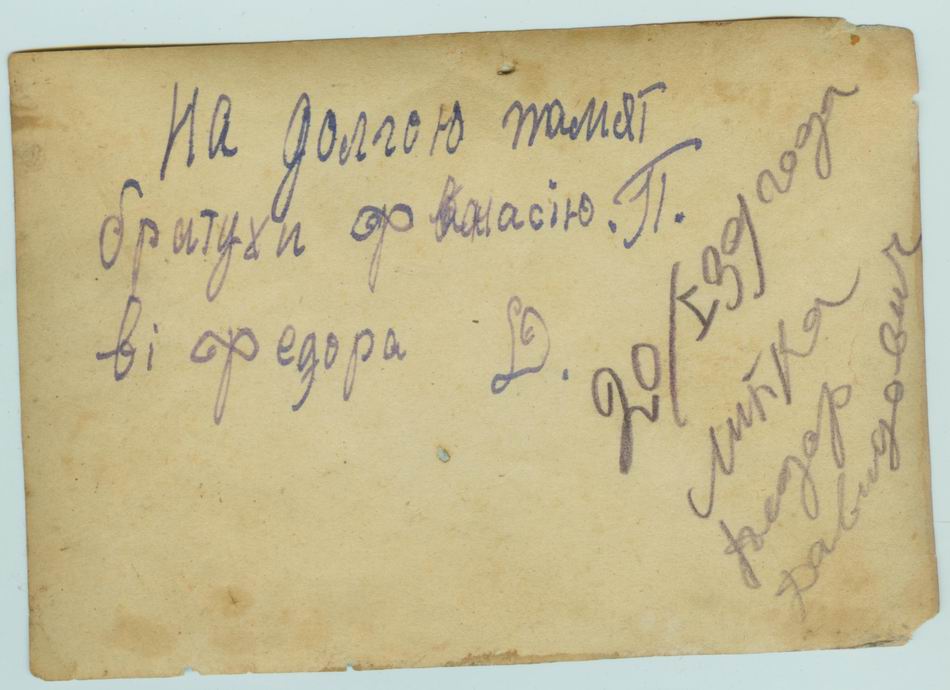 На долгою памят
братухи Фванасію.П.
ві Федора D.
20/I39 года
Лийка
Федор
Давидович